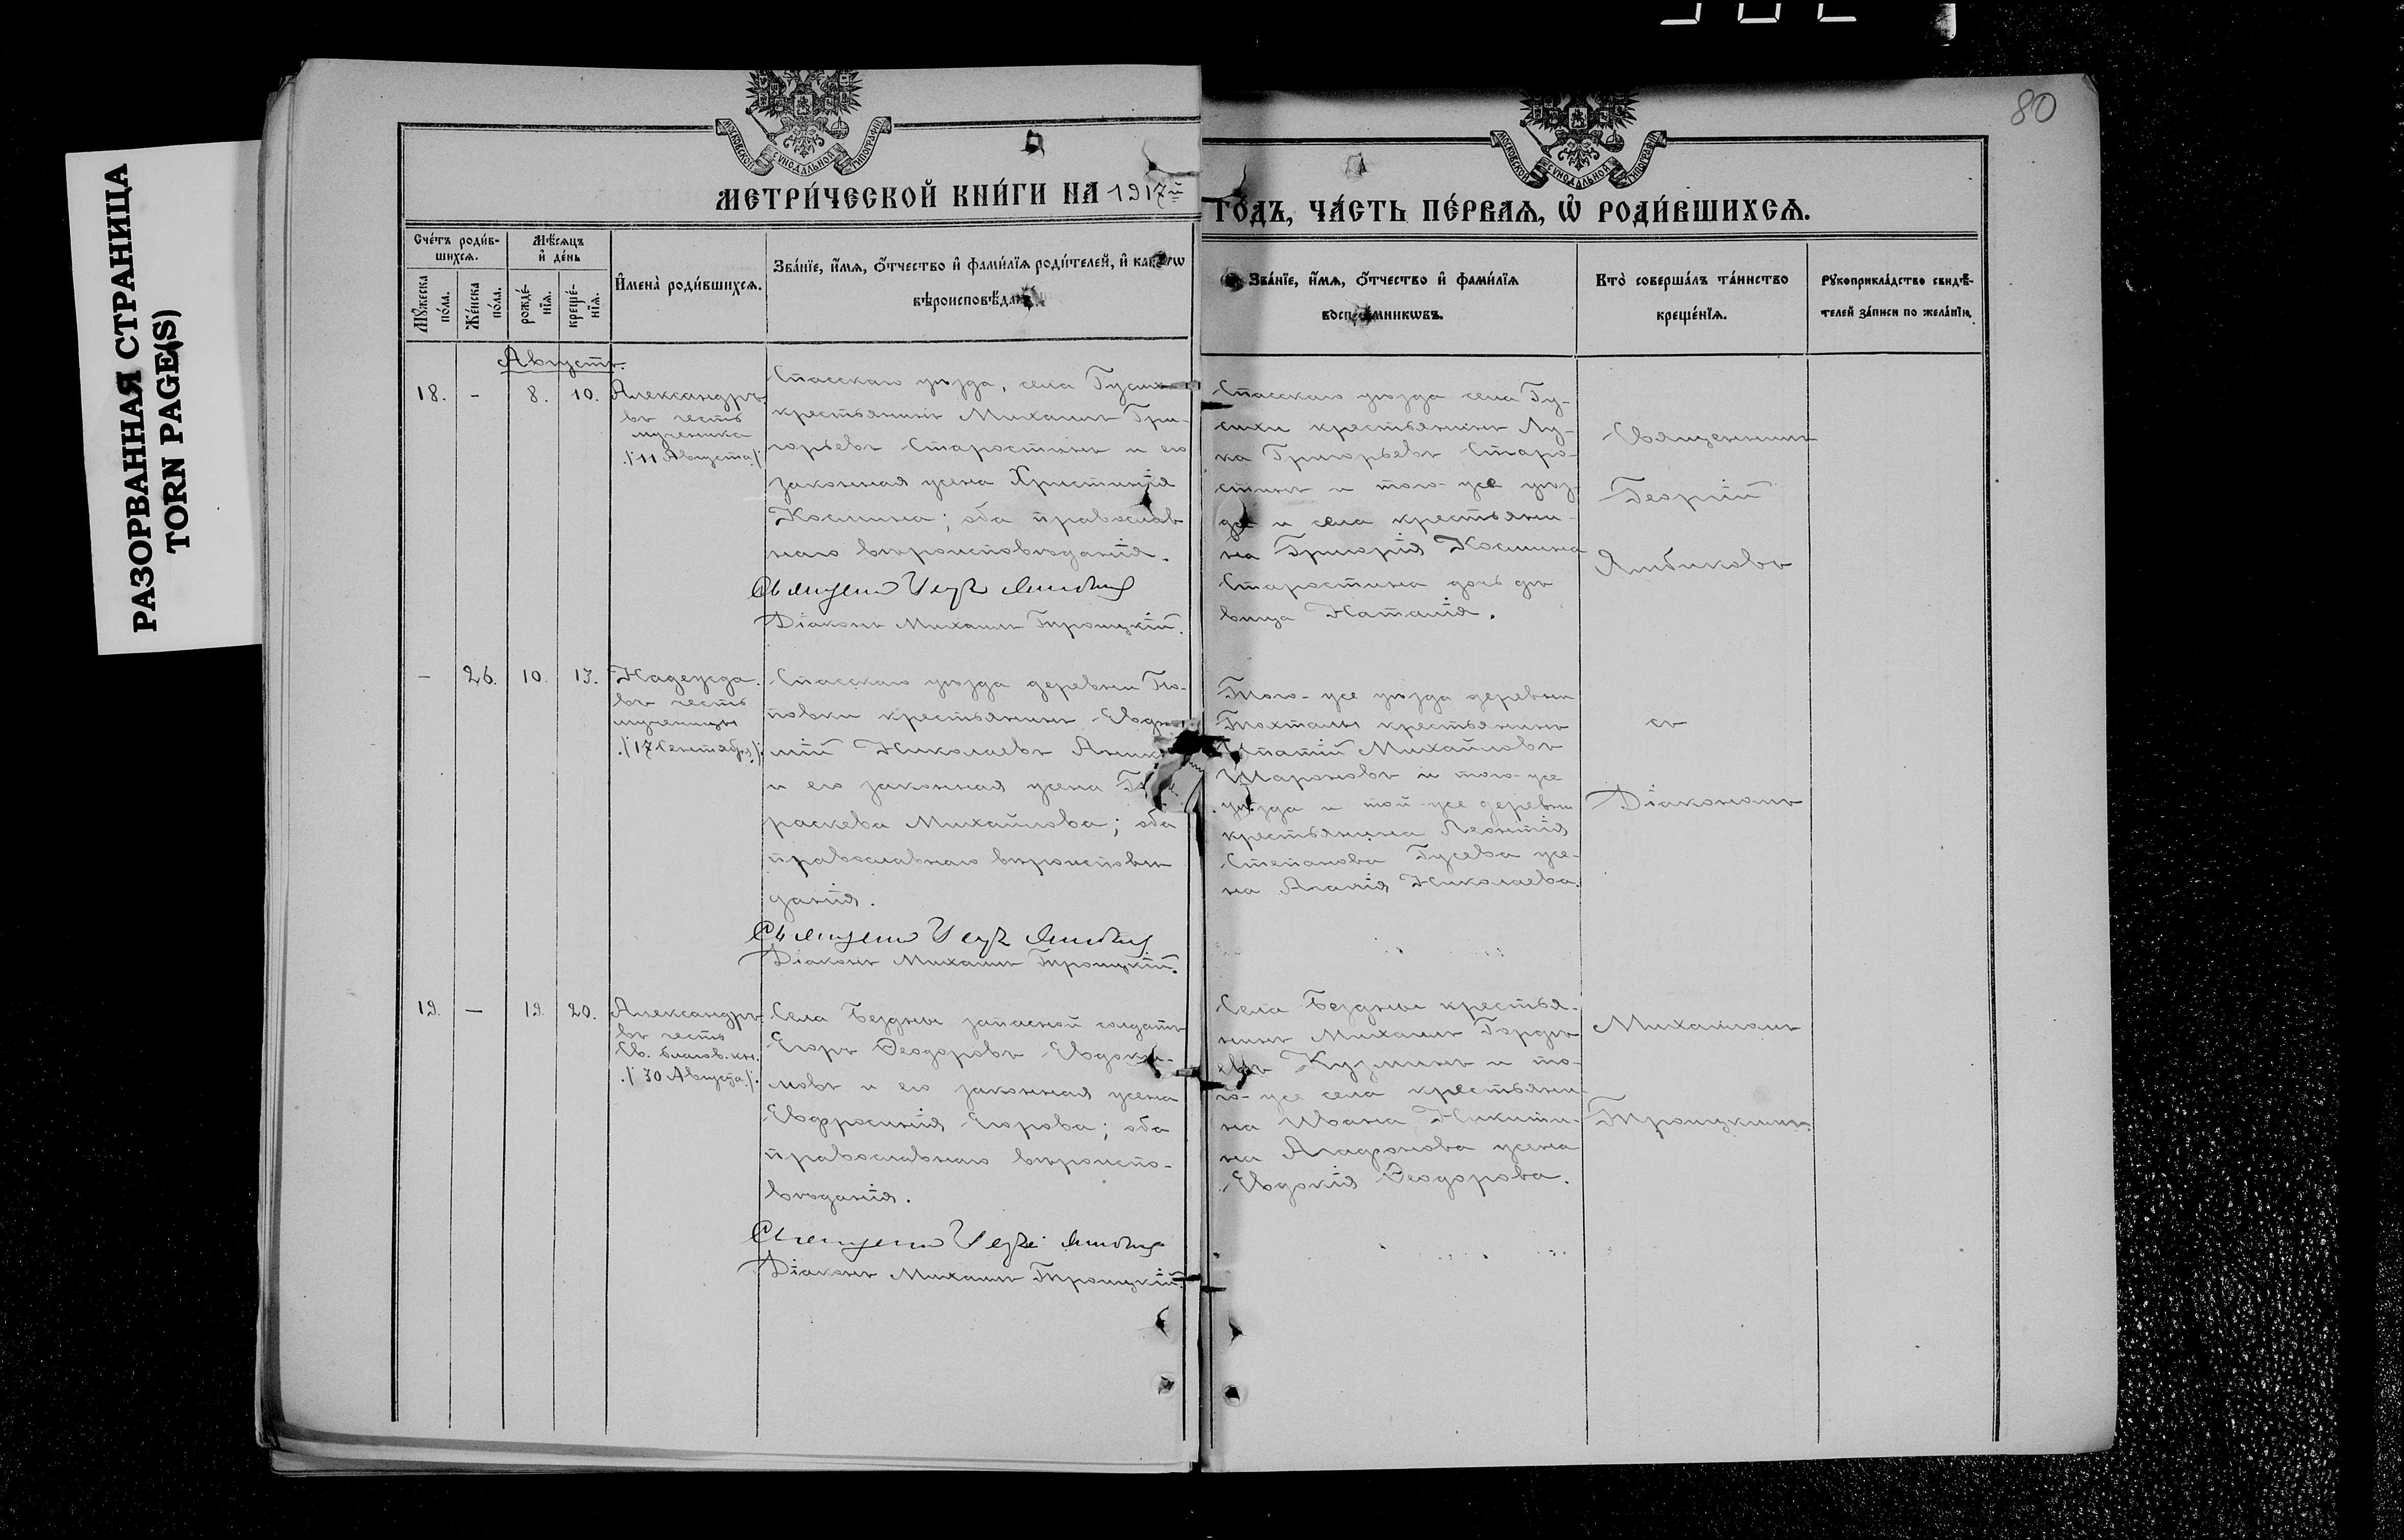 80
РАЗОРВАННАЯ СТРАНИЦА
TORN PAGE(S)
МОСКОВСКОЙ СѴНОДАЛЬНОЙ ТИПОГРАФІИ
МОСКОВСКОЙ СѴНОДАЛЬНОЙ ТИПОГРАФІИ
МЕТРИ́ЧЕСКОЙ КНИ́ГИ НА 1917й
ГО́ДЪ, ЧА́СТЬ ПЕ́РВАЯ, Ѡ РОДИ́ВШИХСЯ.
Сче́тъ роди́в-
шихся.
Мꙋ́жеска
по́ла.
Же́нска
по́ла.
Мѣ́сяцъ
и҆ де́нь
рожде́-
нїя.
креще́-
нїя.
И҆мена̀ роди́вшихся.
Зва́нїе, и҆́мя, ѻ҆́тчество и҆ фами́лїя роди́телей, и҆
вѣроисповѣ́данїя.
Зва́нїе, и҆́мя, ѻ҆́тчество и҆ фами́лїя
воспрїе́мникѡвъ.
Кто̀ соверша́лъ та́инство
креще́нїя.
Рꙋкоприкла́дство свидѣ́-
телей за́писи по жела́нїю.
Августъ.
18. - 8. 10. Александръ
въ честь
мученика
./11 Августа/.
Спасскаго уѣзда, села Гусихи
крестьянинъ Михаилъ Гри-
горьевъ Старостинъ и его
законная жена Христинія
Космина; оба православ
наго вѣроисповѣданія.
Діаконъ Михаилъ Троицкій.
Спасскаго уѣзда села Гу-
сихи крестьянинъ Лу-
ка Григорьевъ Старо-
стинъ и того-же уѣз-
да и села крестьяни-
на Григорія Космина
Старостина дочь дѣ
вица Наталія.
Священникъ
Георгій
Ямбиковъ
- 26. 10. 13. Надежда.
въ честь
мученицы
./17 Сентября/.
Спасскаго уѣзда деревни По-
повки крестьянинъ Евдо-
мій Николаевъ
и его законная жена П
раскева Михайлова; оба
православнаго вѣроисповѣ
данія.
Діаконъ Михаилъ Троицкій.
Того-же уѣзда деревни
Тохталы крестьянинъ
Ипатій Михайловъ
Шароновъ и того-же
уѣзда и той-же деревни
крестьянина Леонтія
Степанова Гусева же-
на Агапія Николаева.
съ
Діакономъ
19. - 19. 20. Александръ.
въ честь
Св. благов. кн.
./30 Августа/.
Села Бездны запасной солдатъ
Егоръ Ѳеодоровъ Евдоки-
мовъ и его законная жена
Евфросинія Егорова; оба
православнаго вѣроиспо-
вѣданія.
Діаконъ Михаилъ Троицкій.
Села Бездны крестья-
нинъ Михаилъ Гордѣ
евъ Кузминъ и то-
го-же села крестьяни-
на Ивана Никити-
на Агафонова жена
Евдокія Ѳеодорова.
Михаиломъ
Троицкимъ.